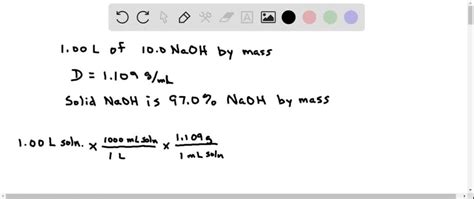 1.00 L of 10.0 NaOH by mass
D = 1.109 g/mL
Solid NaOH is 97.0% NaOH by mass
1.00 L soln. x 1000 mL soln / 1 L x 1.109 g / 1 mL soln